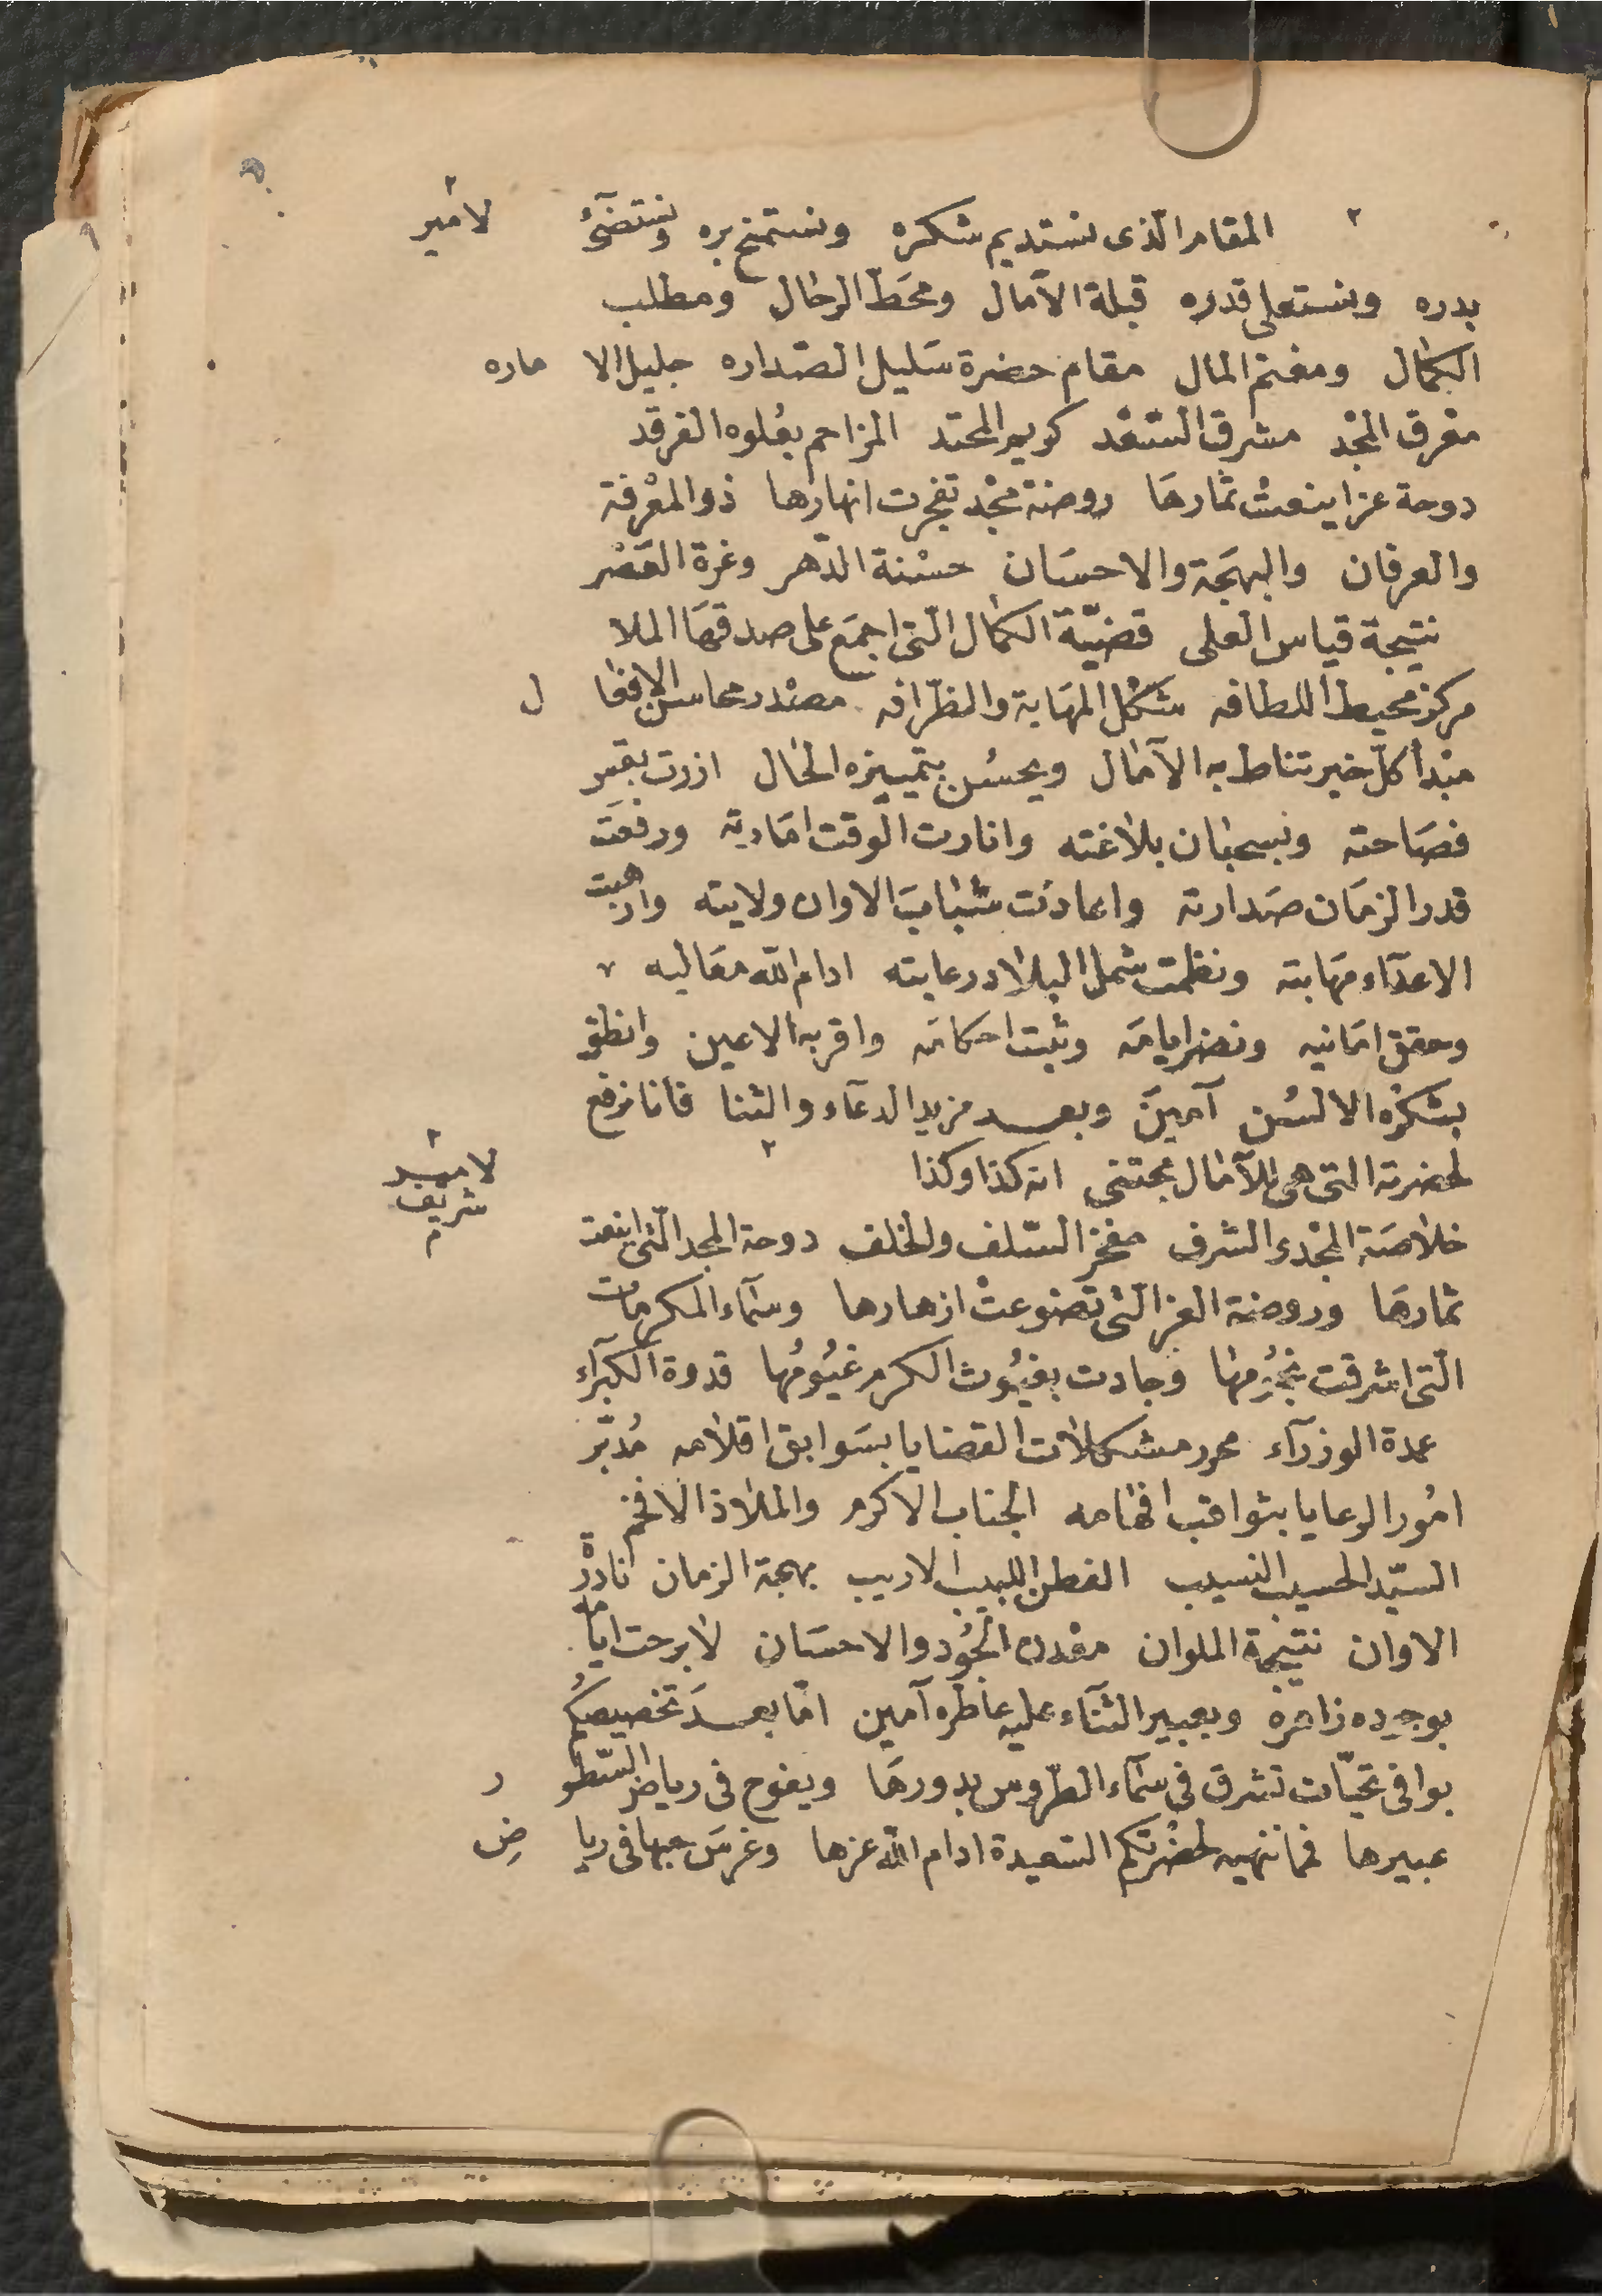 المقام الذى نستديم شكره ونستمنح بره ونستضئ
لامير
بدره ونستعلى قدره قبلة الآمال ومحَط الرحال ومطلب
الكمال ومغنم المال مقام حضرة سَليل الصّداره جليل الا ماره
مفرق المجْد مشرق السّعْد كريم المحتد المزاحم بعُلوه الفرقد
دوحة عز اينعت ثمارهَا روضة مجْد تفجرت انهارها ذو المعْرفة
والعرفان والبهجَة والاحسَان حسْنة الدّهر وغرة العَصْر
نتيجة قياس العلى قضيّة الكمال التى اجمَع على صدقهَا الملا
مركز محيط اللطافه شكْل المهَابة والظّرافه مصْدر محاسن الافعا ل
مبْدأ كلّ خير تناط به الآمال ويحسُن بتمييزه الحال ازرت بقس
فصَاحته وبسحبان بلاغته وانارت الوقت امَارته ورفعَت
قدر الزمَان صَدارته واعادَت شبَابَ الاوان ولايته وارهبت
الاعدَآء مهَابته ونظمت شمل البلاد رعايته ادام الله معَاليه
وحقق امَانيه ونضر ايامَه وثبت احكامَه واقر به الاعين وانطق
بشكرُه الالسُن آمينَ وبعد مزيد الدعآء والثنا فانا نرفع
لحضرته التى هى للآمال مجتنى انه كذا وكذا
لامير
شريف
خلاصَة المجْد والشرف مفخر السّلف والخلف دوحة المجد التى اينعت
ثمارهَا وروضة العز التى تضوعتْ ازهارها وسمَآء المكرمات
الّتى اشرقت نجُومُها وجادت بغيُوث الكرم غيُومُها قدوة الكبرَآء
عمدة الوزرآء محرر مشكلات القضايا بسَوابق اقلامه مُدبّر
امُور الرعايا بثواقب افهامه الجناب الاكرم والملاذ الافخم
السيّد الحسيب النسيب الفطن اللبيب الاريب بهجة الزمان نادرة
الاوان نتيجة الملوان معْدن الجُود والاحسَان لا برحت ايامه
بوجوده زاهرة وبعبير الثنَآء عليه عاطره آمين امّا بعدَ تخصيصكُم
بوافى تحيّات تشرق فى سمَآء الطّروس بدورهَا ويفوح فى رياض السّطو ر
عبيرها فمما ننهيه لحضْرتكم السّعيدة ادام الله عزها وغرسَ حبها فى ريا ض